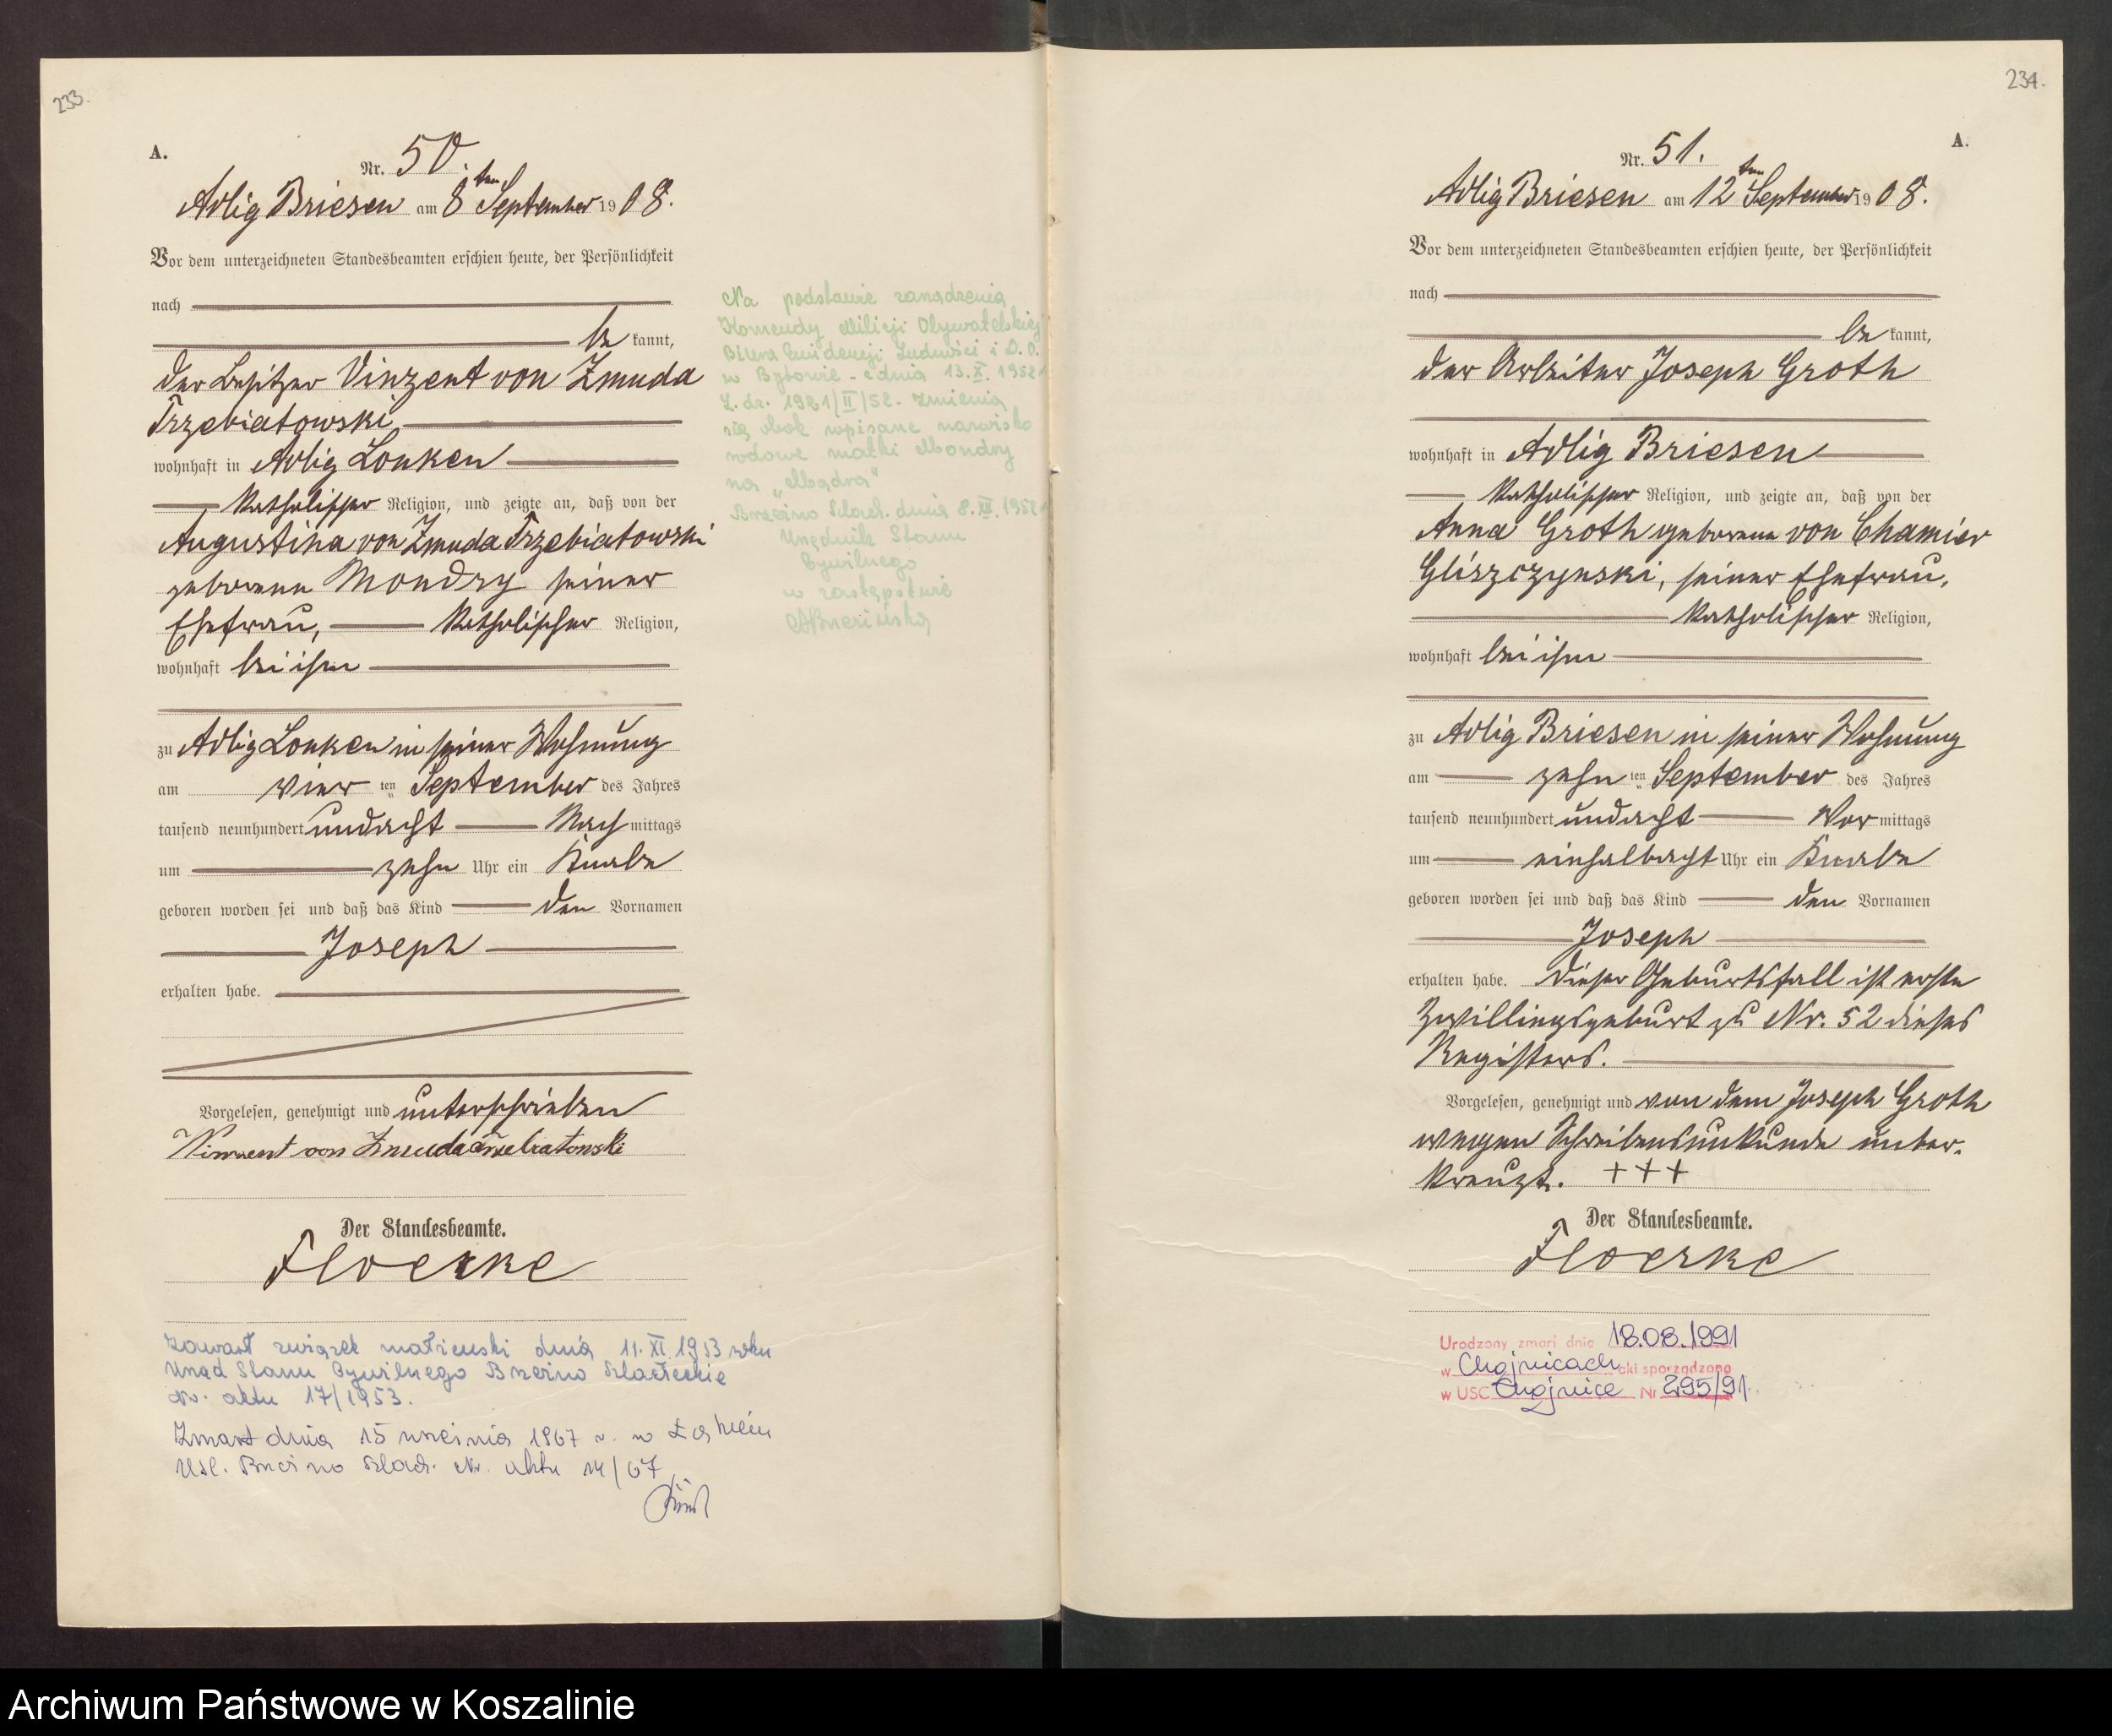 233.
A.
Nr. 50.
Adlig Briesen am 8ten September 1908.
Vor dem unterzeichneten Standesbeamten erschien heute, der Persönlichkeit
nach
be kannt,
der Besitzer Vinzent von Zmuda
Trzebiatowski
wohnhaft in Adlig Lonken
katholischer Religion, und zeigte an, daß von der
Augustina von Zmuda Trzebiatowski
geborene Mondry seiner
Ehefrau, katholischer Religion,
wohnhaft bei ihm
zu Adlig Lonken in seiner Wohnung
am vier ten September des Jahres
tausend neunhundert undacht Nach mittags
um zehn Uhr ein Knabe
geboren worden sei und daß das Kind den Vornamen
Joseph
erhalten habe.
Vorgelesen, genehmigt und unterschrieben
Vincent von Zmuda Trzebiatowski
Der Standesbeamte.
Floerke
Zawarł związek małżeński dnia 11.XI.1953 roku
Urząd Stanu Cywilnego Brzeźno Szlacheckie
Nr. aktu 17/1953.
Zmarł dnia 15 września 1967 r. w Łąkiem
USC. Brzeźno Szlach. Nr. aktu 14/67
Na podstawie zarządzenia
Komendy Milicji Obywatelskiej
Biura Ewidencji Ludności i D.O.
w Bytowie z dnia 13.X.1952
L.dz. 1981/II/52. zmienia
się obok wpisane nazwisko
rodowe matki Mondry
na „Mądra"
Brzeźno Szlach. dnia 8.XII.1952
Urzędnik Stanu
Cywilnego
w zastępstwie
234.
A.
Nr. 51.
Adlig Briesen am 12ten September 1908.
Vor dem unterzeichneten Standesbeamten erschien heute, der Persönlichkeit
nach
be kannt,
der Arbeiter Joseph Groth
wohnhaft in Adlig Briesen
katholischer Religion, und zeigte an, daß von der
Anna Groth geborene von Chamier
Gliszczynski, seiner Ehefrau,
katholischer Religion,
wohnhaft bei ihm
zu Adlig Briesen in seiner Wohnung
am zehn ten September des Jahres
tausend neunhundert undacht Vor mittags
um einhalbacht Uhr ein Knabe
geboren worden sei und daß das Kind den Vornamen
Joseph
erhalten habe. Dieser Geburtsfall ist erste
Zwillingsgeburt zu Nr. 52 dieses
Registers.
Vorgelesen, genehmigt und von dem Joseph Groth
wegen Schreibensunkunde unter-
kreuzt. +++
Der Standesbeamte.
Floerke
Urodzony zmarł dnia 18.08.1991
w Chojnicach akt sporządzono
w USC Chojnice Nr 295/91
Archiwum Państwowe w Koszalinie